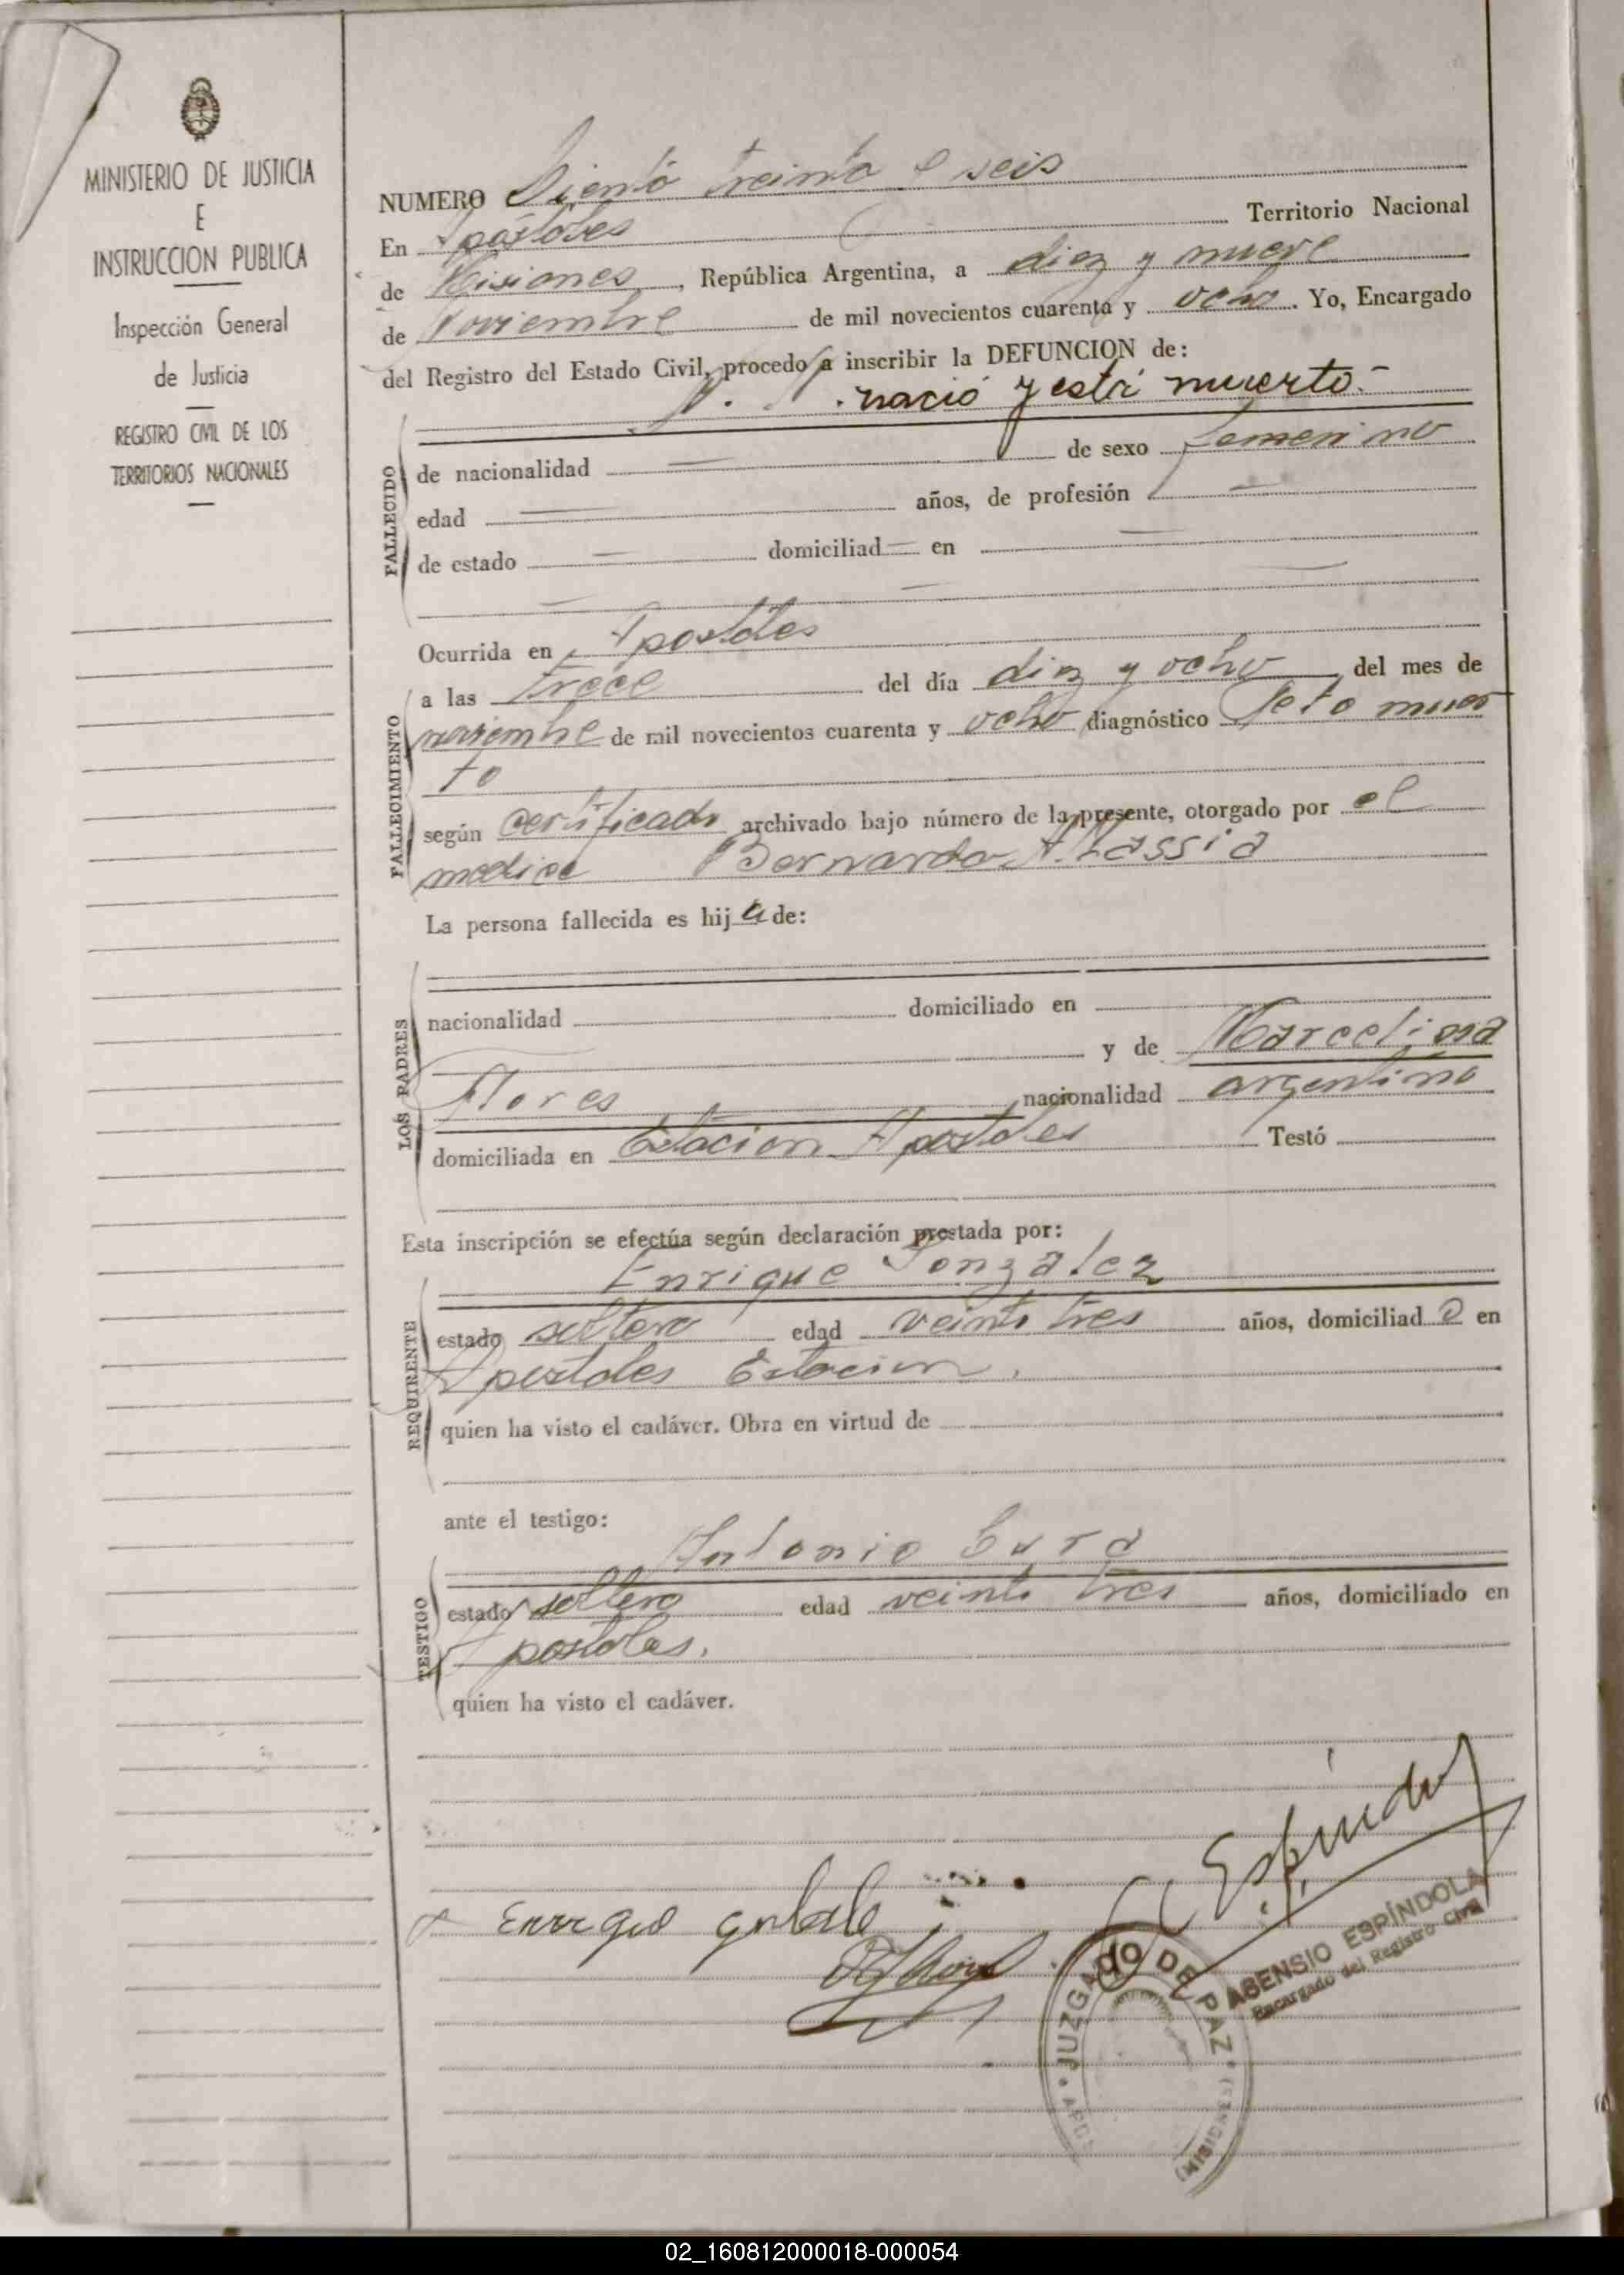 MINISTERIO DE JUSTICIA
E
INSTRUCCION PUBLICA
Inspección General
de Justicia
REGISTRO CIVIL DE LOS
TERRITORIOS NACIONALES
NUMERO Siento treinta e seis
En Apostoles Territorio Nacional
de Misiones, República Argentina, a diez y nueve
de Noviembre de mil novecientos cuarenta y ocho. Yo, Encargado
del Registro del Estado Civil, procedo a inscribir la DEFUNCION de:
N. N. nació y está muerto.-
FALLECIDO
de nacionalidad — de sexo femenino
edad — años, de profesión —
de estado — domiciliad — en —
Ocurrida en Apostoles
FALLECIMIENTO
a las trece del día diez y ocho del mes de
noviembre de mil novecientos cuarenta y ocho diagnóstico feto muer
to
según certificado archivado bajo número de la presente, otorgado por el
medico Bernardo
La persona fallecida es hija de:
LOS PADRES
nacionalidad domiciliado en
y de Marcelina
Flores nacionalidad argentina
domiciliada en Estacion Apostoles Testó
Esta inscripción se efectúa según declaración prestada por:
Enrique Gonzalez
REQUIRENTE
estado soltero edad veinti tres años, domiciliado en
Apostoles Estacion.
quien ha visto el cadáver. Obra en virtud de
ante el testigo:
Antonio
TESTIGO
estado soltero edad veinti tres años, domiciliado en
Apostoles.
quien ha visto el cadáver.
Espíndola
ASENSIO ESPÍNDOLA
Encargado del Registro Civil
JUZGADO DE PAZ
(MISIONES)
02_160812000018-000054